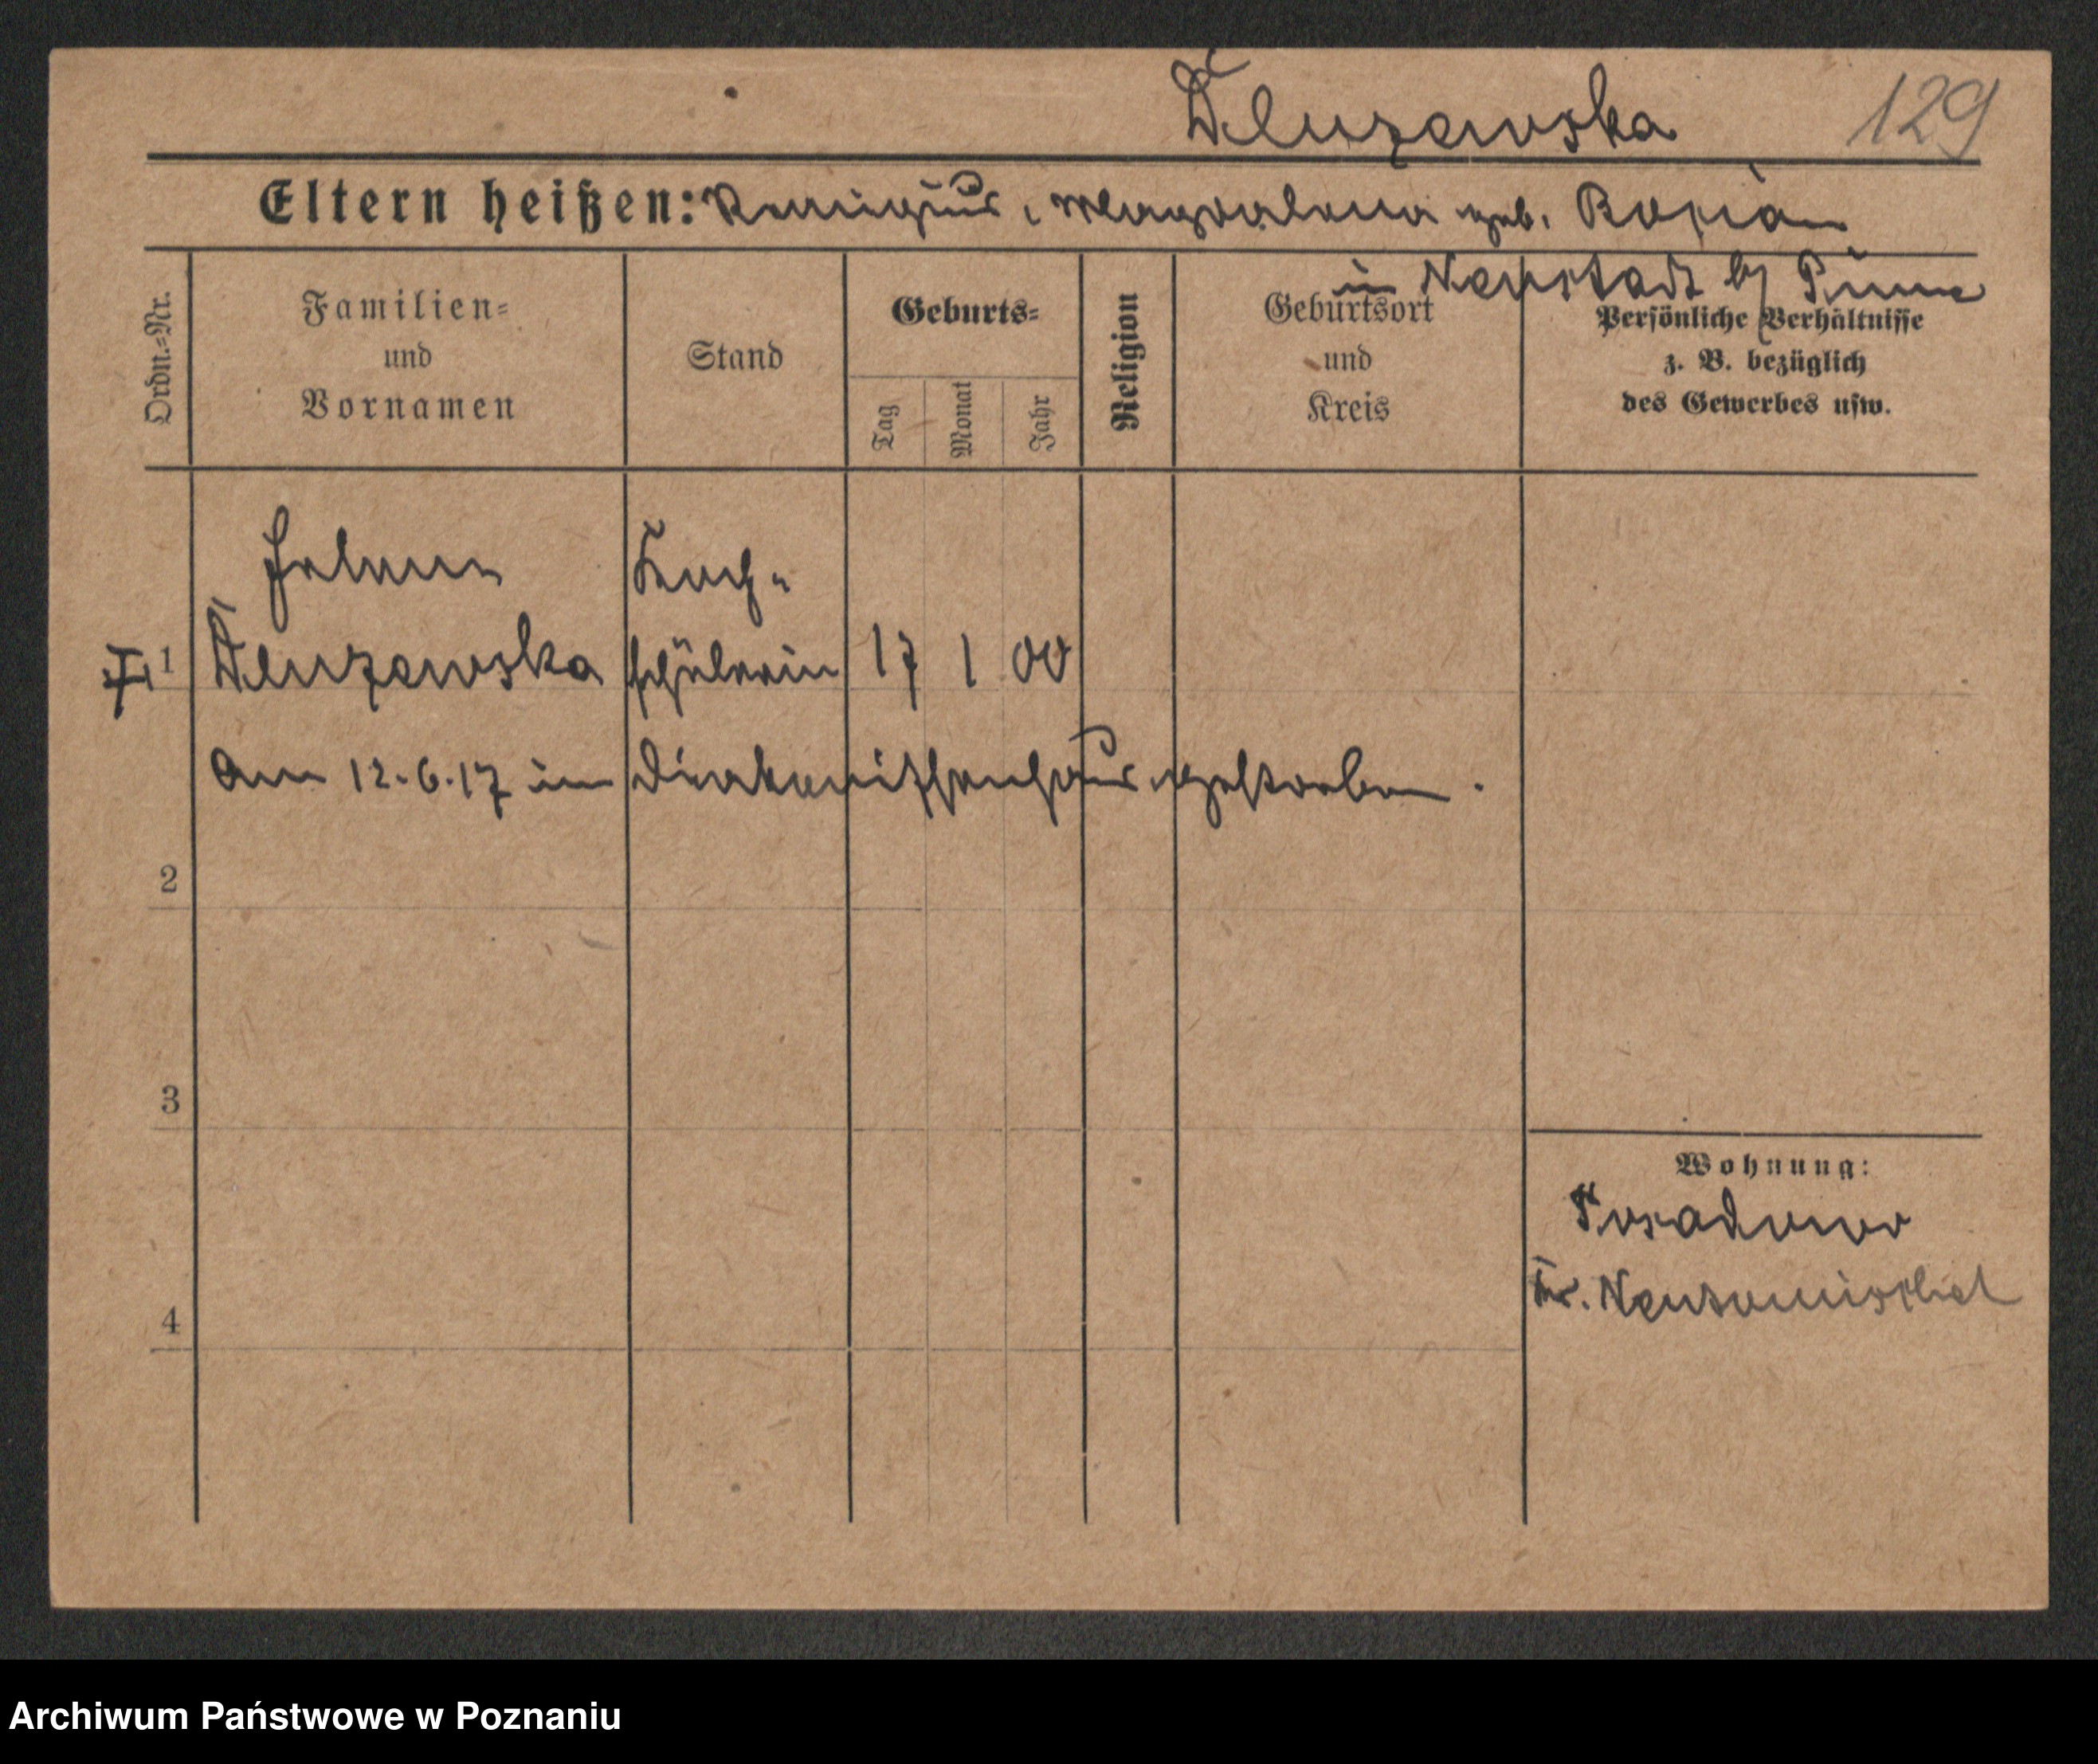 Dluzewska 129
Eltern heißen: Remigius, Magdalena geb.
in Neustadt b/ Pinne
Ordn.=Nr.
Familien=
und
Vornamen
Stand
Geburts=
Tag
Monat
Jahr
Religion
Geburtsort
und
Kreis
Persönliche Verhältnisse
z. B. bezüglich
des Gewerbes usw.
Helene Koch-
1 Dluzewska schülerin 17 1 00
am 12.6.17 im Diakonissenhaus gestorben.
2
3
Wohnung:
Posadowo
Kr. Neutomischel
4
Archiwum Państwowe w Poznaniu